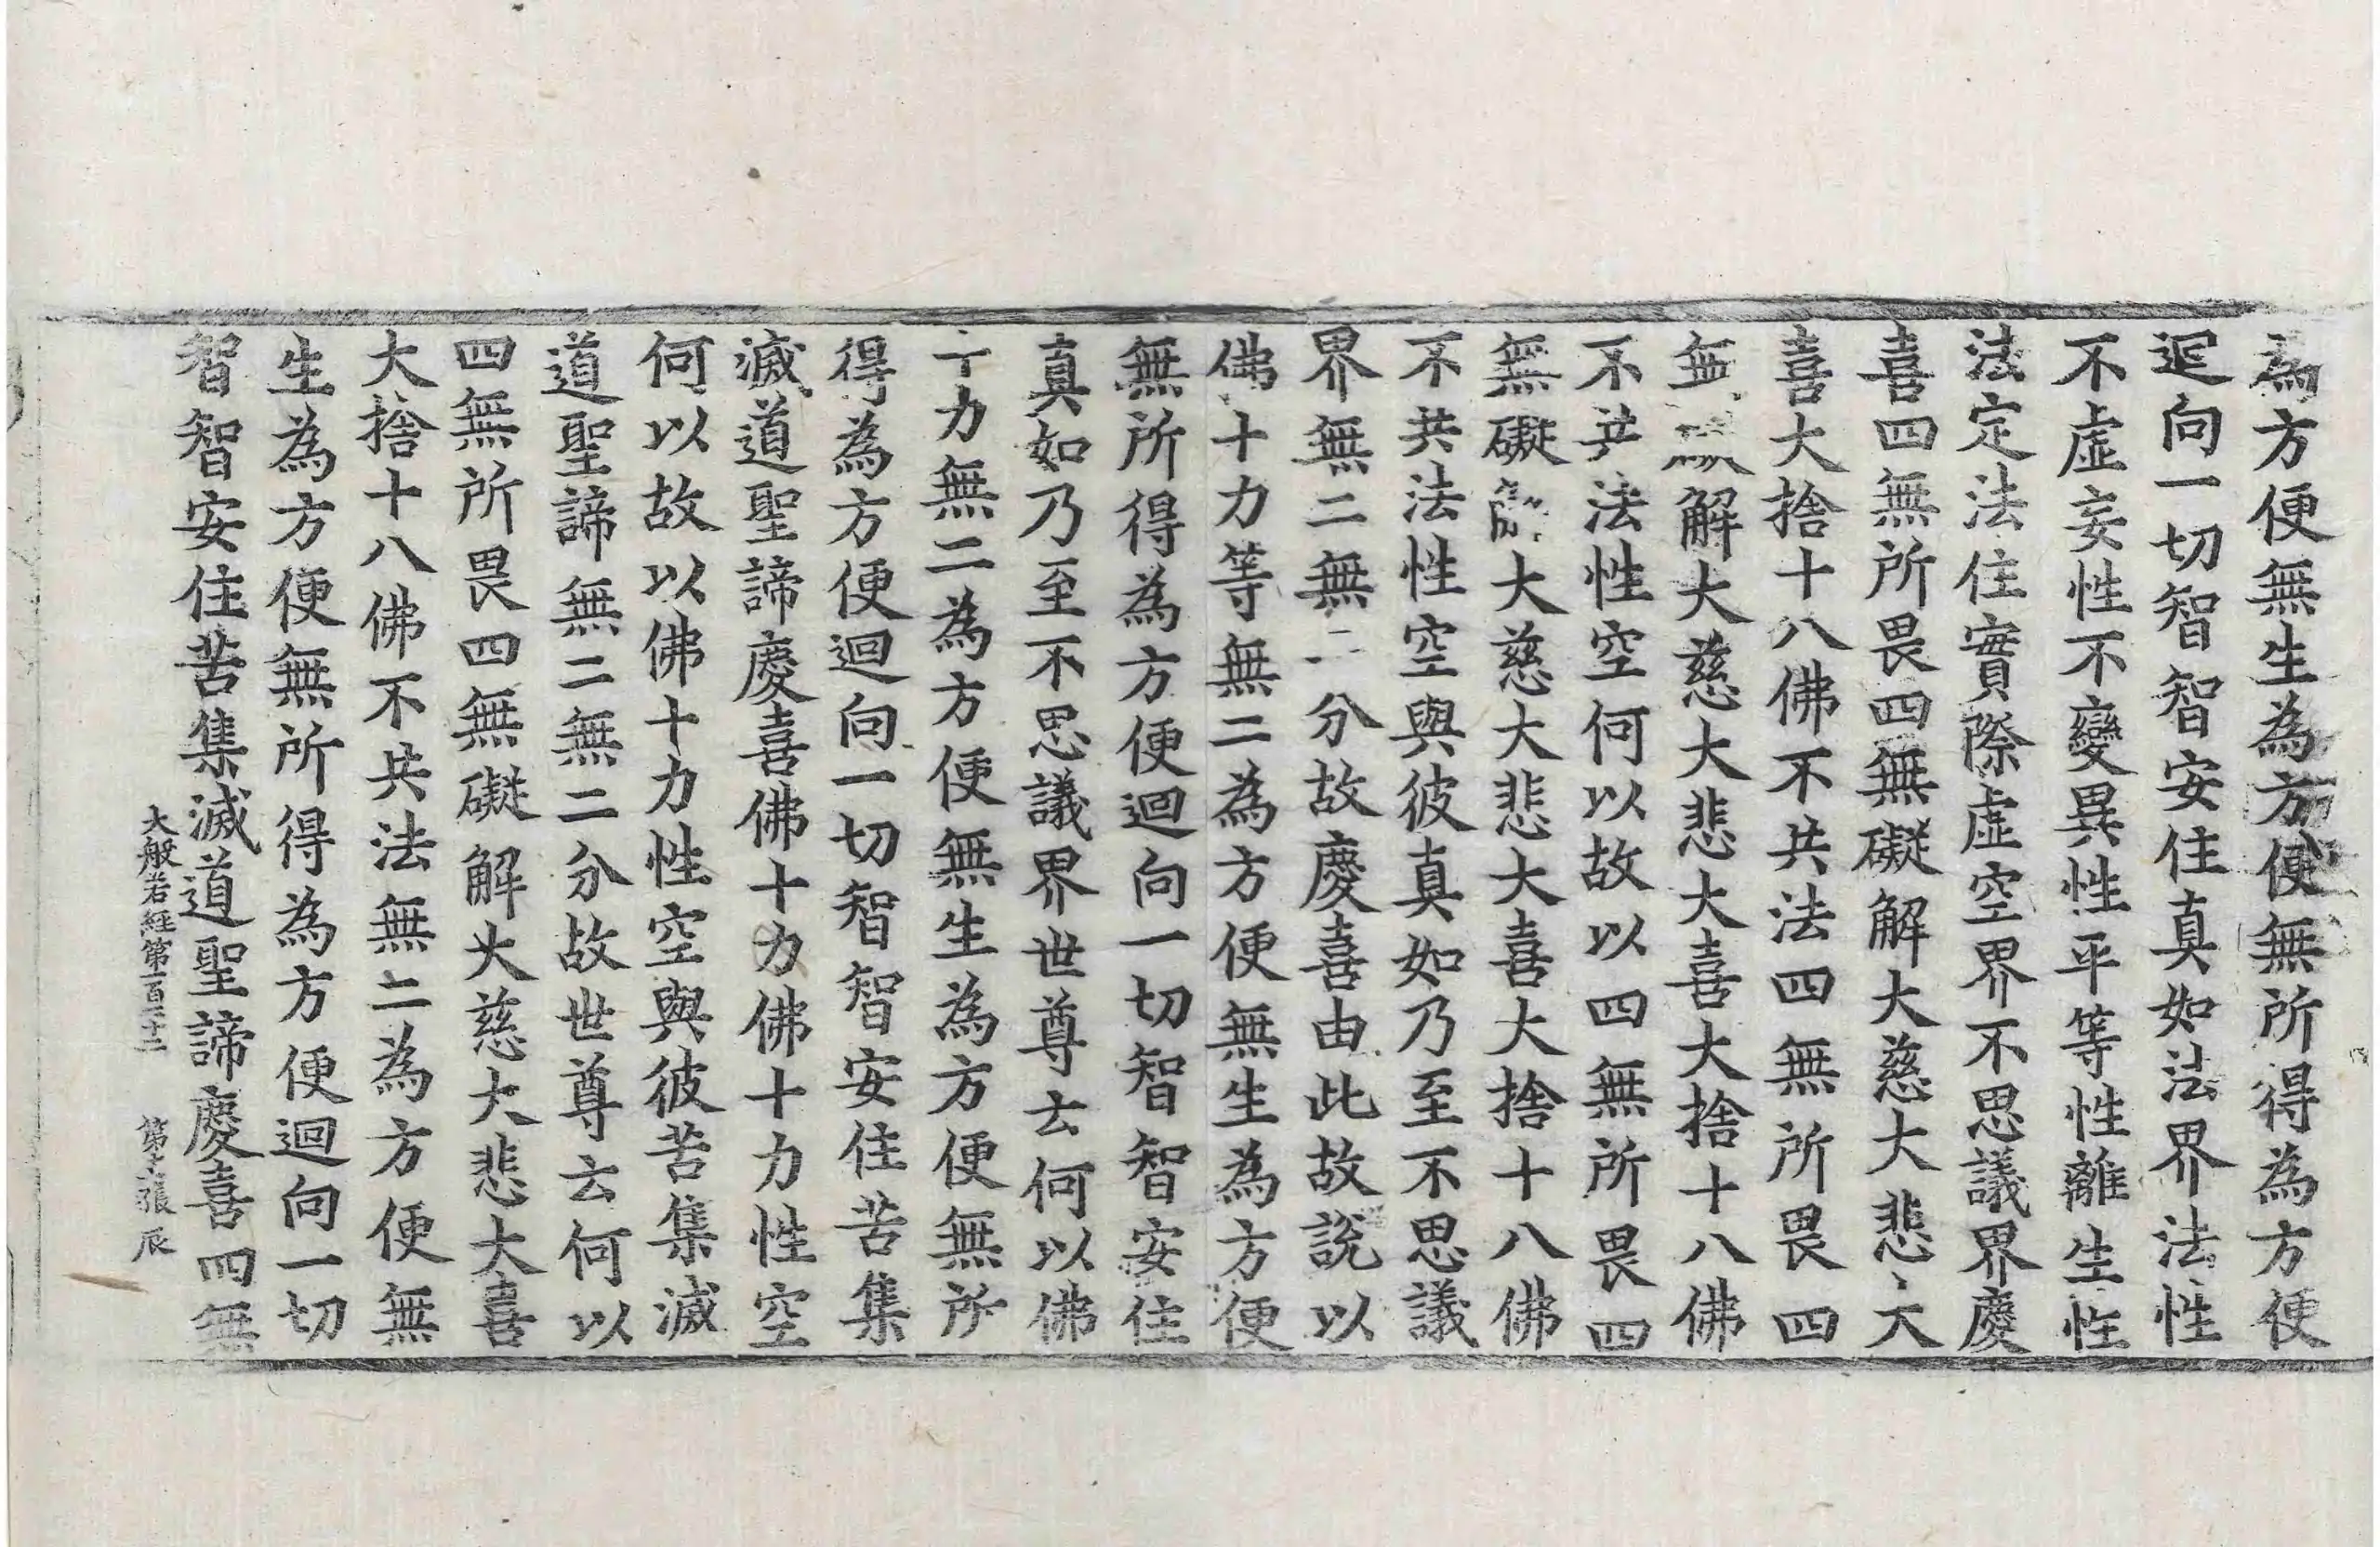 為方便無生為方便無所得為方便
迴向一切智智安住真如法界法性
不虛妄性不變異性平等性離生性
法定法住實際虛空界不思議界慶
喜四無所畏四無礙解大慈大悲大
喜大捨十八佛不共法四無所畏四
無礙解大慈大悲大喜大捨十八佛
不共法性空何以故以四無所畏四
無礙解大慈大悲大喜大捨十八佛
不共法性空與彼真如乃至不思議
界無二無二分故慶喜由此故說以
佛十力等無二為方便無生為方便
無所得為方便迴向一切智智安住
真如乃至不思議界世尊云何以佛
十力無二為方便無生為方便無所
得為方便迴向一切智智安住苦集
滅道聖諦慶喜佛十力佛十力性空
何以故以佛十力性空與彼苦集滅
道聖諦無二無二分故世尊云何以
四無所畏四無礙解大慈大悲大喜
大捨十八佛不共法無二為方便無
生為方便無所得為方便迴向一切
智智安住苦集滅道聖諦慶喜四無
大般若經第一百二十二 第 張 辰